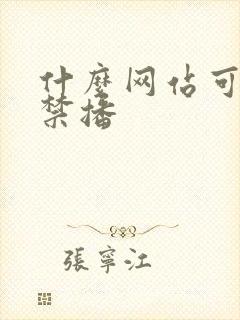 什麼网佔可
禁播
張寧江